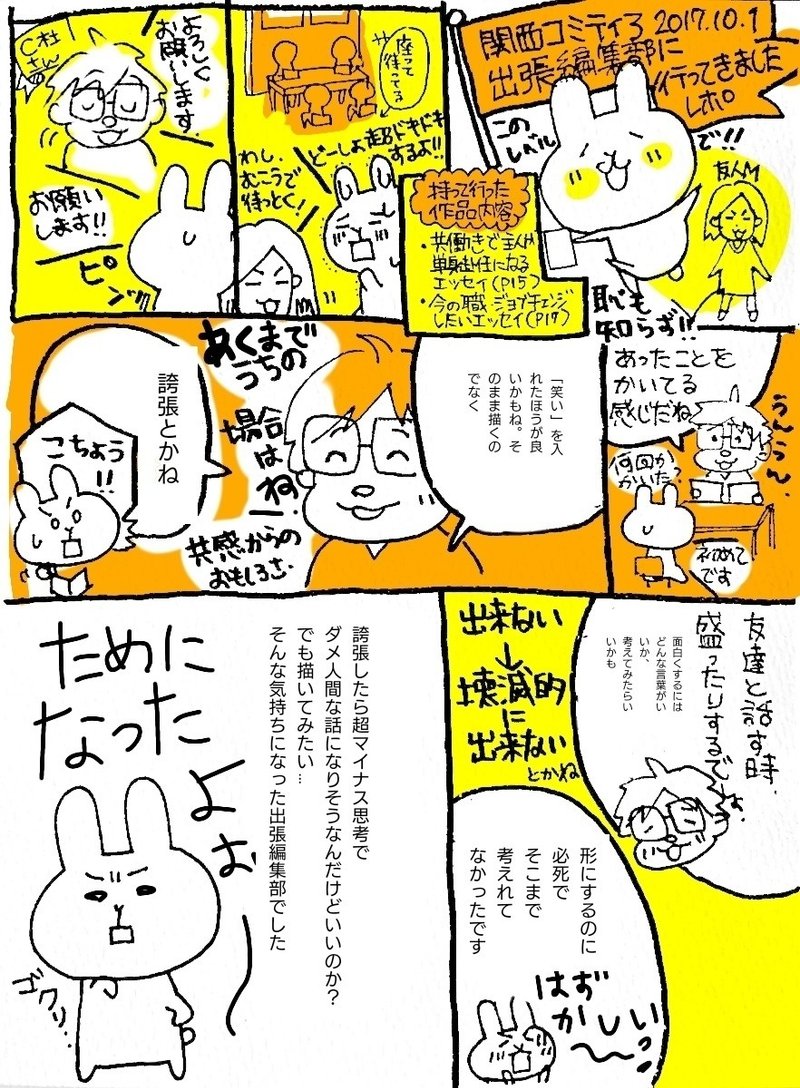 関西コミティア 2017.10.1
出張編集部に
行ってきました
レポ
この
レベル
で!!
友人M
恥も
知らず!!
持って行った
作品内容
・共働きで主人が
単身赴任になる
エッセイ(P15)
・今の職ジョブチェンジ
したいエッセイ(P17)
座って
待ってる
どーしよ超ドキドキ
するよ!!
わし、
むこうで
待っとく!
C社さん
よろしく
お願いします。
お願い
します!!
ピシッ
あったことを
かいてる
感じだね
うんうん
何回か
かいた?
初めて
です
「笑い」を入
れたほうが良
いかもね。そ
のまま描くの
でなく
あくまで
うちの
場合
はね!
共感からの
おもしろさ。
誇張とかね
こちょう
!!
友達と話す時、
盛ったりするでしょ
面白くするには
どんな言葉がい
いか、
考えてみたらい
いかも
出来ない
↓
壊滅的
に
出来ない
とかね
形にするのに
必死で
そこまで
考えれて
なかったです
はず
かしいっ
誇張したら超マイナス思考で
ダメ人間な話になりそうなんだけどいいのか?
でも描いてみたい…
そんな気持ちになった出張編集部でした
ために
なった
よぉ
ゴクリ…